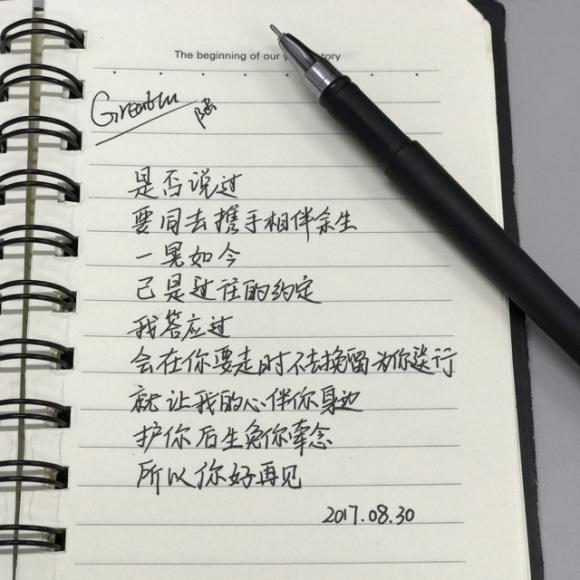 The beginning of our y tory
是否说过
要同去携手相伴余生
一晃如今
已是过往的约定
我答应过
会在你要走时不去挽留为你送行
就让我的心伴你身边
护你后生免你牵念
所以你好再见
2017.08.30